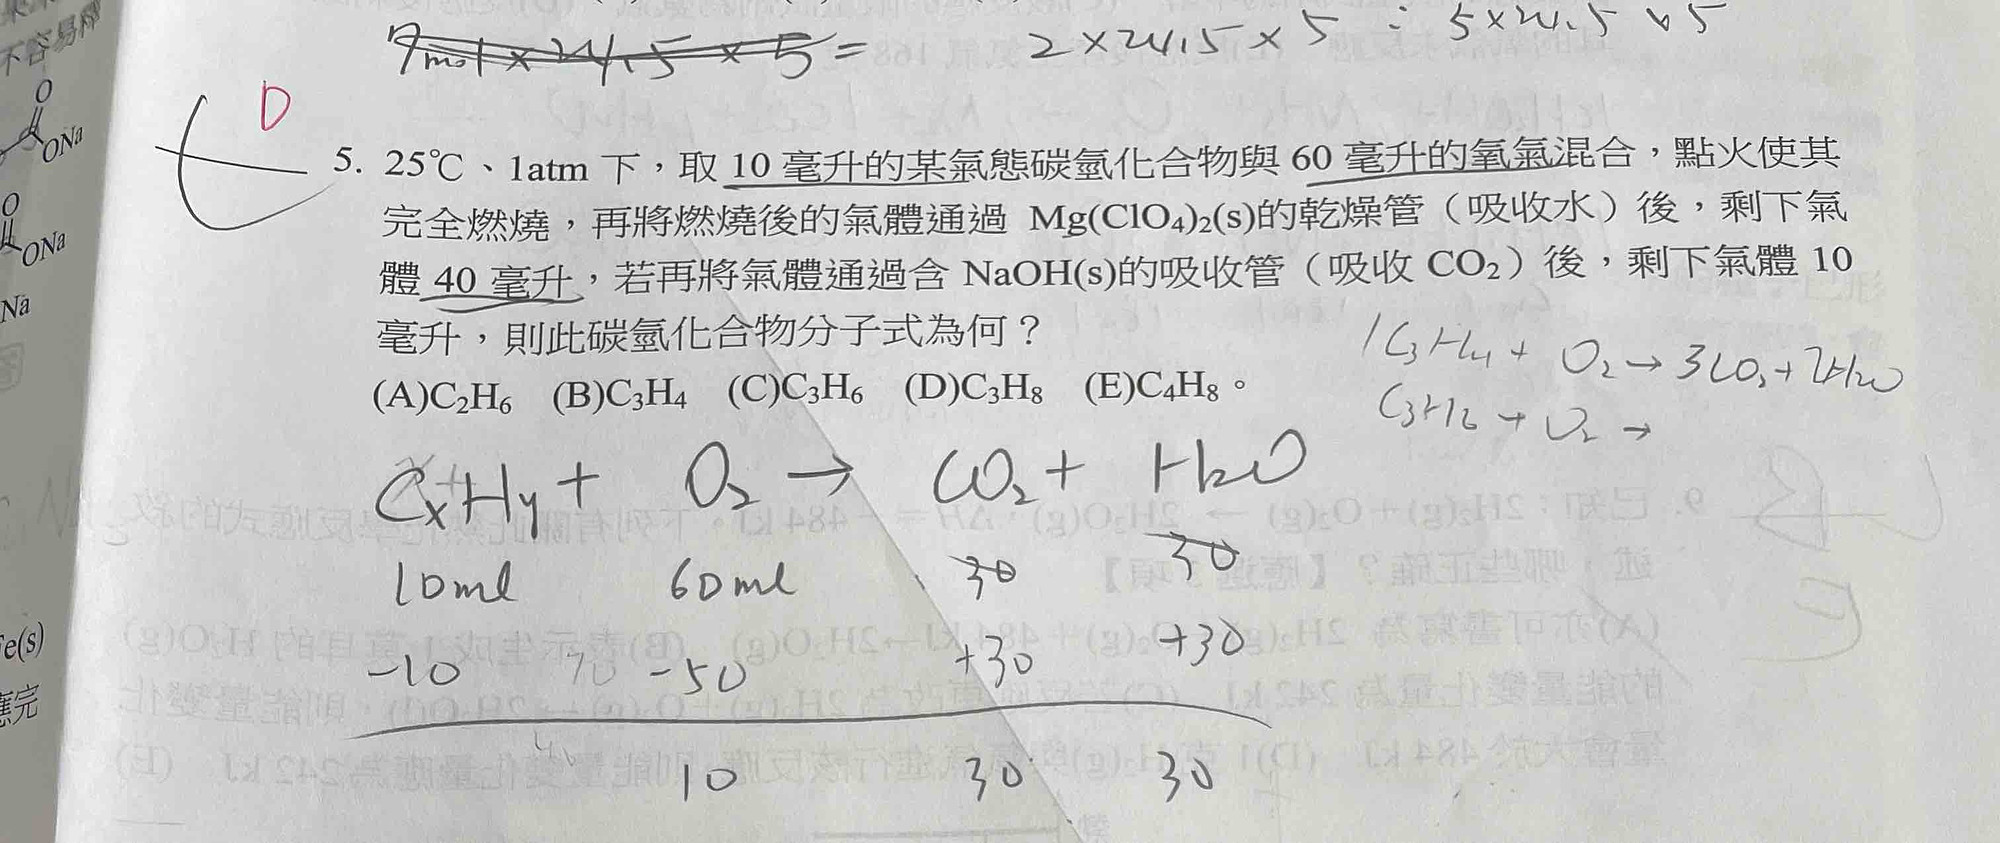 不容易
O
ONa
O
ONa
Na
e(s)
應完
7mol × 24.5 × 5 = 2 × 24.5 × 5 : 5 × 24.5 × 5
C D
5. 25℃、1atm 下，取 10 毫升的某氣態碳氫化合物與 60 毫升的氧氣混合，點火使其
完全燃燒，再將燃燒後的氣體通過 Mg(ClO₄)₂(s)的乾燥管（吸收水）後，剩下氣
體 40 毫升，若再將氣體通過含 NaOH(s)的吸收管（吸收 CO₂）後，剩下氣體 10
毫升，則此碳氫化合物分子式為何？
(A)C₂H₆ (B)C₃H₄ (C)C₃H₆ (D)C₃H₈ (E)C₄H₈。
1C₃H₄ + O₂ → 3CO₂ + 2H₂O
C₃H₆ + O₂ →
CxHy + O₂ → CO₂ + H₂O
10ml 60ml 30 30
-10 70 -50 +30 +30
10 30 30